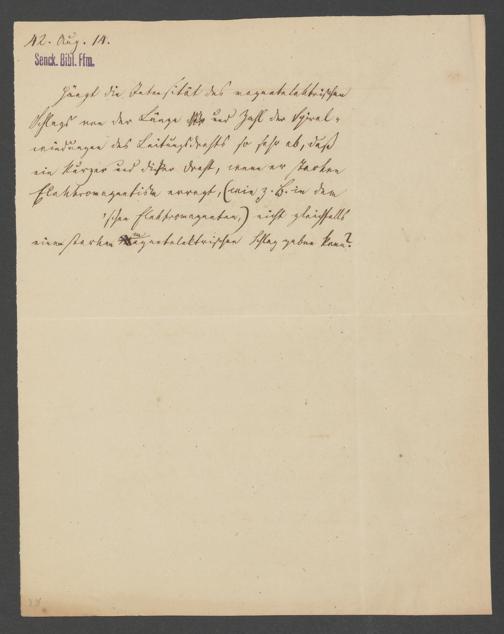 42. Aug. 14.
Senck. Bibl. Ffm.
Hängt die Intensität des magnetelektrischen
Schlags von der Länge und Zahl der Spiral-
windungen des Leitungsdrahts so sehr ab, daß
ein kurzer und dicker Draht, wenn er starken
Elektromagnetism erregt, (wie z. B. in dem
'schen Elektromagneten,) nicht gleichfalls
einen starken magnetelektrischen Schlag geben kann?